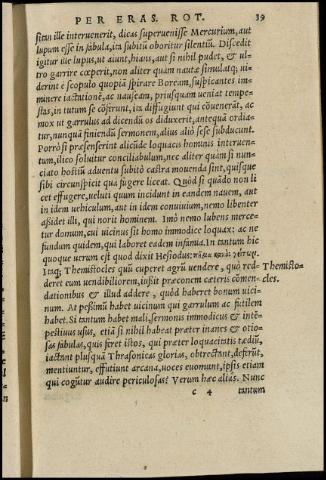 PER ERAS. ROT. 39
sitan ille interuenerit, dicas superuenisse Mercurium, aut
lupum esse in fabula, ita subitū oboritur silentiū. Discedit
igitur ille lupus, ut aiunt, hians, aut si nihil pudet, & ul-
tro garrire cœperit, non aliter quàm nautæ simulatq; ui-
derint e scopulo quopiā spirare Boream, suspicantes im-
minere iactationē, ac nauseam, priusquàm ueniat tempe-
stas, in tutum se cōferunt, ita diffugiunt qui cōuenerāt, ac
mox ut garrulus ad dicendū os diduxerit, antequā ordia-
tur, nunquā finiendū sermonem, alius aliò sese subducunt.
Porrò si præsenserint alicūde loquacis hominis interuen-
tum, ilico soluitur conciliabulum, nec aliter quàm si nun-
ciato hostiū aduentu subitò castra mouenda sint, quisque
sibi circunspicit quà fugere liceat. Quòd si quādo non li
cet effugere, ueluti quum incidunt in eandem nauem, aut
in idem uehiculum, aut in idem conuiuium, nemo libenter
aßidet illi, qui norit hominem. Imò nemo lubens merce-
tur domum, cui uicinus sit homo immodice loquax: ac ne
fundum quidem, qui laboret eadem infamia. In tantum hic
quoque uerum est quod dixit Hesiodus: πῆμα κακὸς γείτων.
Itaq; Themistocles quū cuperet agrū uendere, quò red-
Themisto-
deret eum uendibiliorem, iussit præconem cæteris cōmen-
cles.
dationibus & illud addere, quòd haberet bonum uici-
num. At peßimū habet uicinum qui garrulum ac futilem
habet. Si tantum habet mali, sermonis immodicus & intē-
pestiuus usus, etiā si nihil habeat præter inanes & otio-
sas fabulas, quis feret istos, qui præter loquacitatis tædiū,
iactant plusquā Thrasonicas glorias, obtrectant, deferūt,
mentiuntur, effutiunt arcana, uoces euomunt, ipsis etiam
qui cogūtur audire periculosas? Verum hæc aliàs. Nunc
c 4 tantum